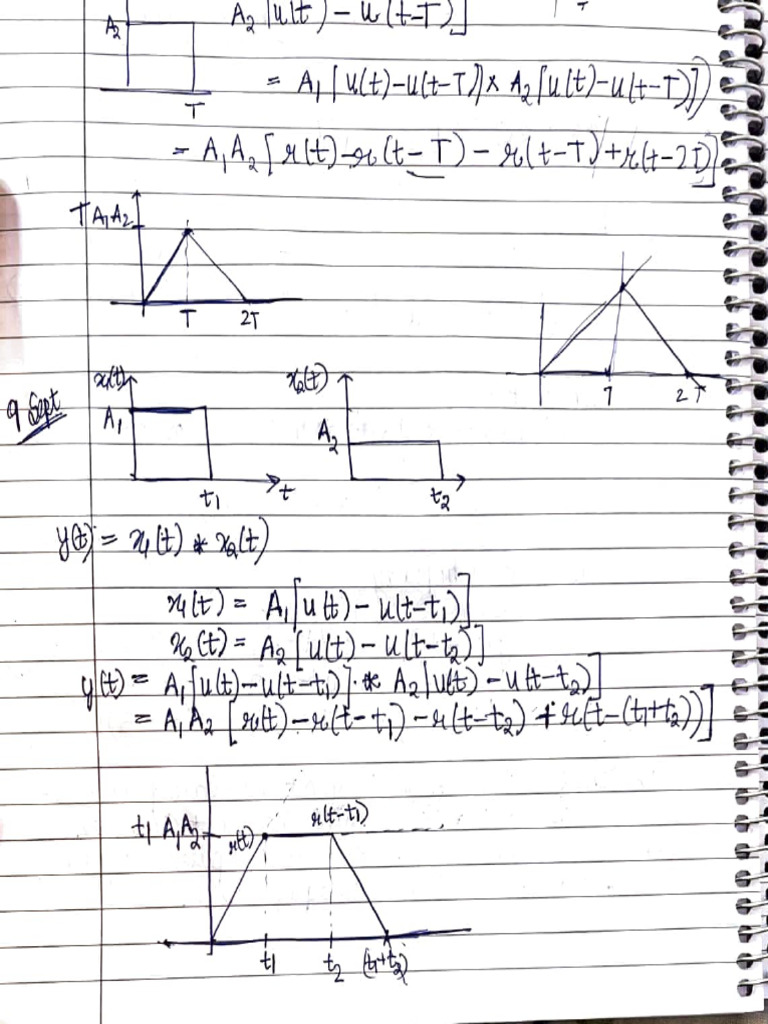 A₂ A₂[u(t) - u(t-T)]
T
= A₁[u(t)-u(t-T)] * A₂[u(t)-u(t-T)]
= A₁A₂[r(t)-r(t-T) - r(t-T)+r(t-2T)]
TA₁A₂
T 2T
T 2T
9 Sept
x₁(t) x₂(t)
A₁ A₂
t₁ t t₂
y(t) = x₁(t) * x₂(t)
x₁(t) = A₁[u(t) - u(t-t₁)]
x₂(t) = A₂[u(t) - u(t-t₂)]
y(t) = A₁[u(t)-u(t-t₁)] * A₂[u(t) - u(t-t₂)]
= A₁A₂[r(t)-r(t-t₁)-r(t-t₂) + r(t-(t₁+t₂))]
t₁ A₁A₂ r(t) r(t-t₁)
t₁ t₂ (t₁+t₂)